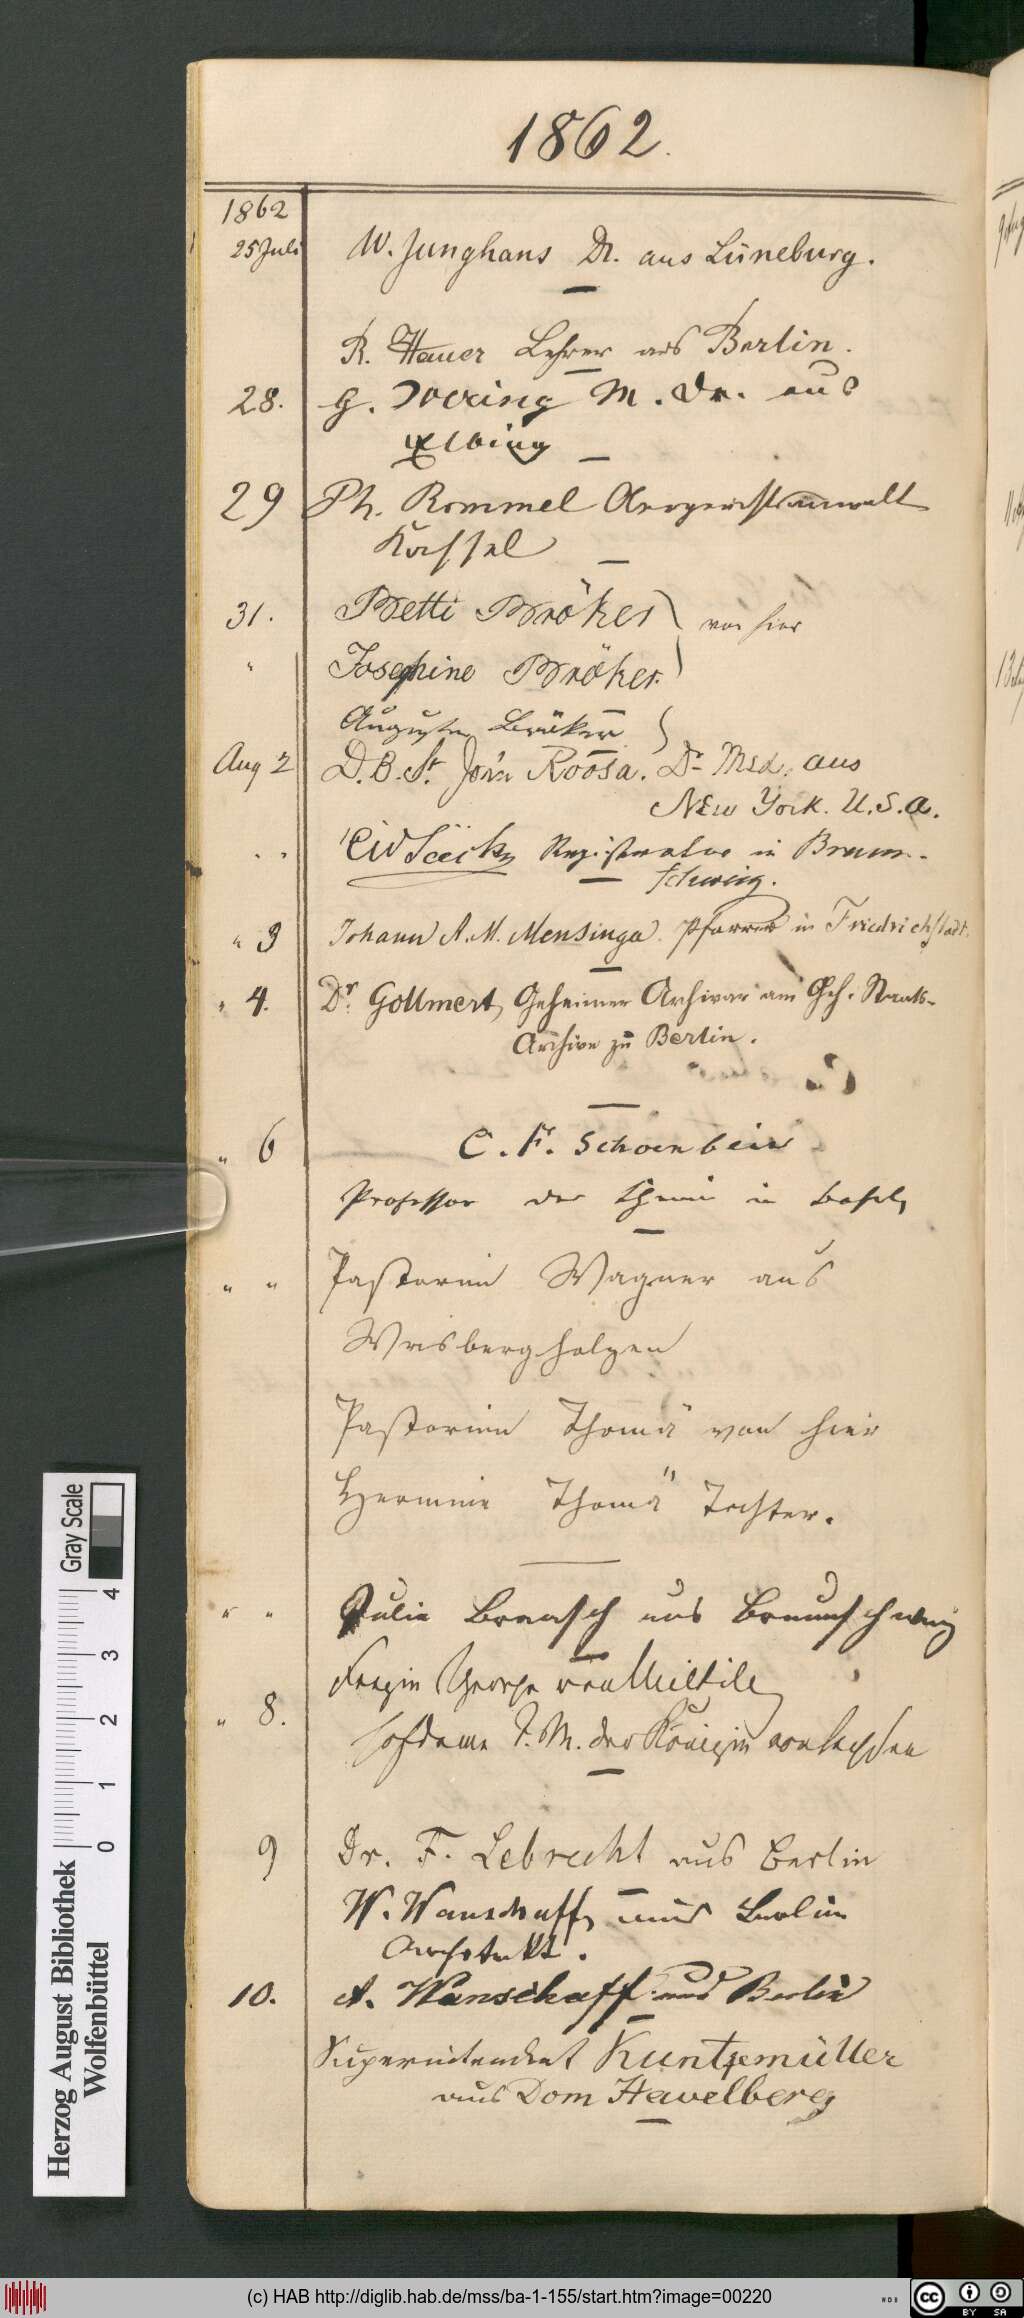 1862.
1862
25 Juli W. Junghans Dr. aus Lüneburg.
R. Hauer Lehrer aus Berlin.
28. G. Doering M. Dr. aus
Elbing
29 Ph. Rommel Obergerichtsanwalt
Kassel
31. Betti Bröker von hier
" Josephine Bröker.
Auguste Bröker
Aug 2 D. B. St. John Roosa. Dr. Med. aus
New York. U.S.A.
" " Registrator in Braun-
schweig.
" 3 Johann A. M. Mensinga. Pfarrer in Friedrichstadt.
" 4. Dr. Gollmert, Geheimer Archivar am Geh. Staats-
Archive zu Berlin.
" 6 C. F. Schoenbein
Professor der Chemie in Basel,
" " Pastorin Wagner aus
Wrisbergholzen
Pastorinn Thomä von hier
Hermine Thomä Tochter.
" " Julie Braasch aus Braunschweig
" 8. George von
Hofdame I. M. der Königin von Sachsen
9 Dr. F. Lebrecht aus Berlin
W. Wanschaff, aus Berlin
Architekt.
10. A. Wanschaff aus Berlin
Superintendent Kuntzemüller
aus Dom Havelberg
Gray Scale
0 1 2 3 4
Herzog August Bibliothek
Wolfenbüttel
(c) HAB http://diglib.hab.de/mss/ba-1-155/start.htm?image=00220
WDB
cc BY SA